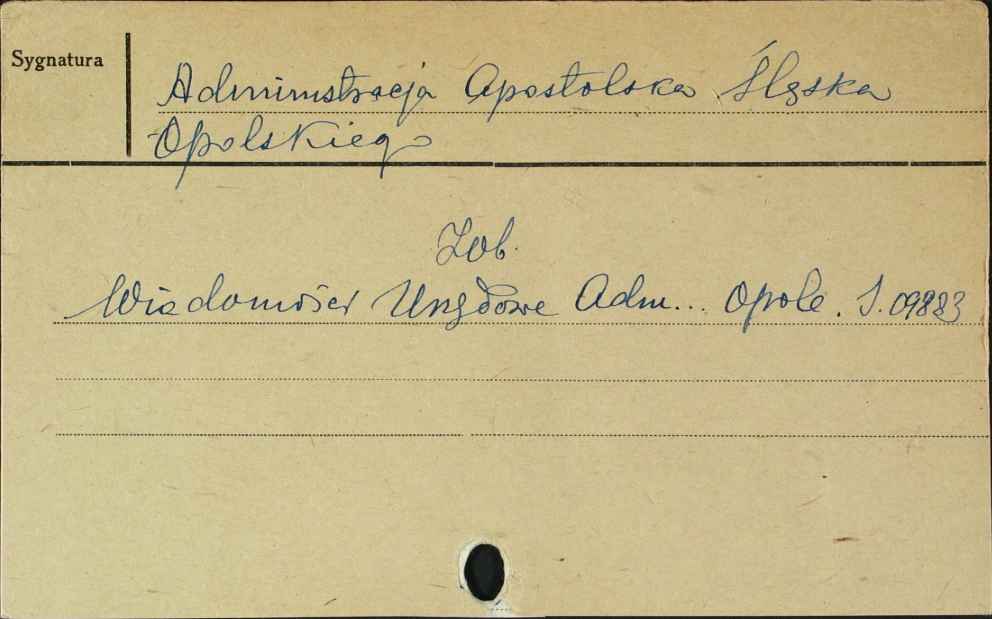 Sygnatura
Administracja Apostolska Śląska
Opolskiego
Zob.
Wiadomości Urzędowe Adm... Opole. S. 09883